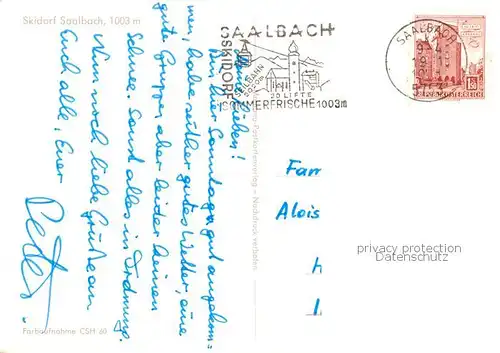 Skidorf Saalbach, 1003 m
Ihr Lieben!
Bin hier Sonntags gut angekom=
men, habe seither gutes Wetter, eine
gute Gruppe, aber leider keinen
Schnee. Sonst alles in Ordnung.
Nun noch liebe Grüße an
Euch alle! Euer
Peter
Farbaufnahme CSH 60
SAALBACH
SKIDORF
20 LIFTE
SOMMERFRISCHE 1003m
SAALBACH
Fam
Alois
privacy protection
Datenschutz